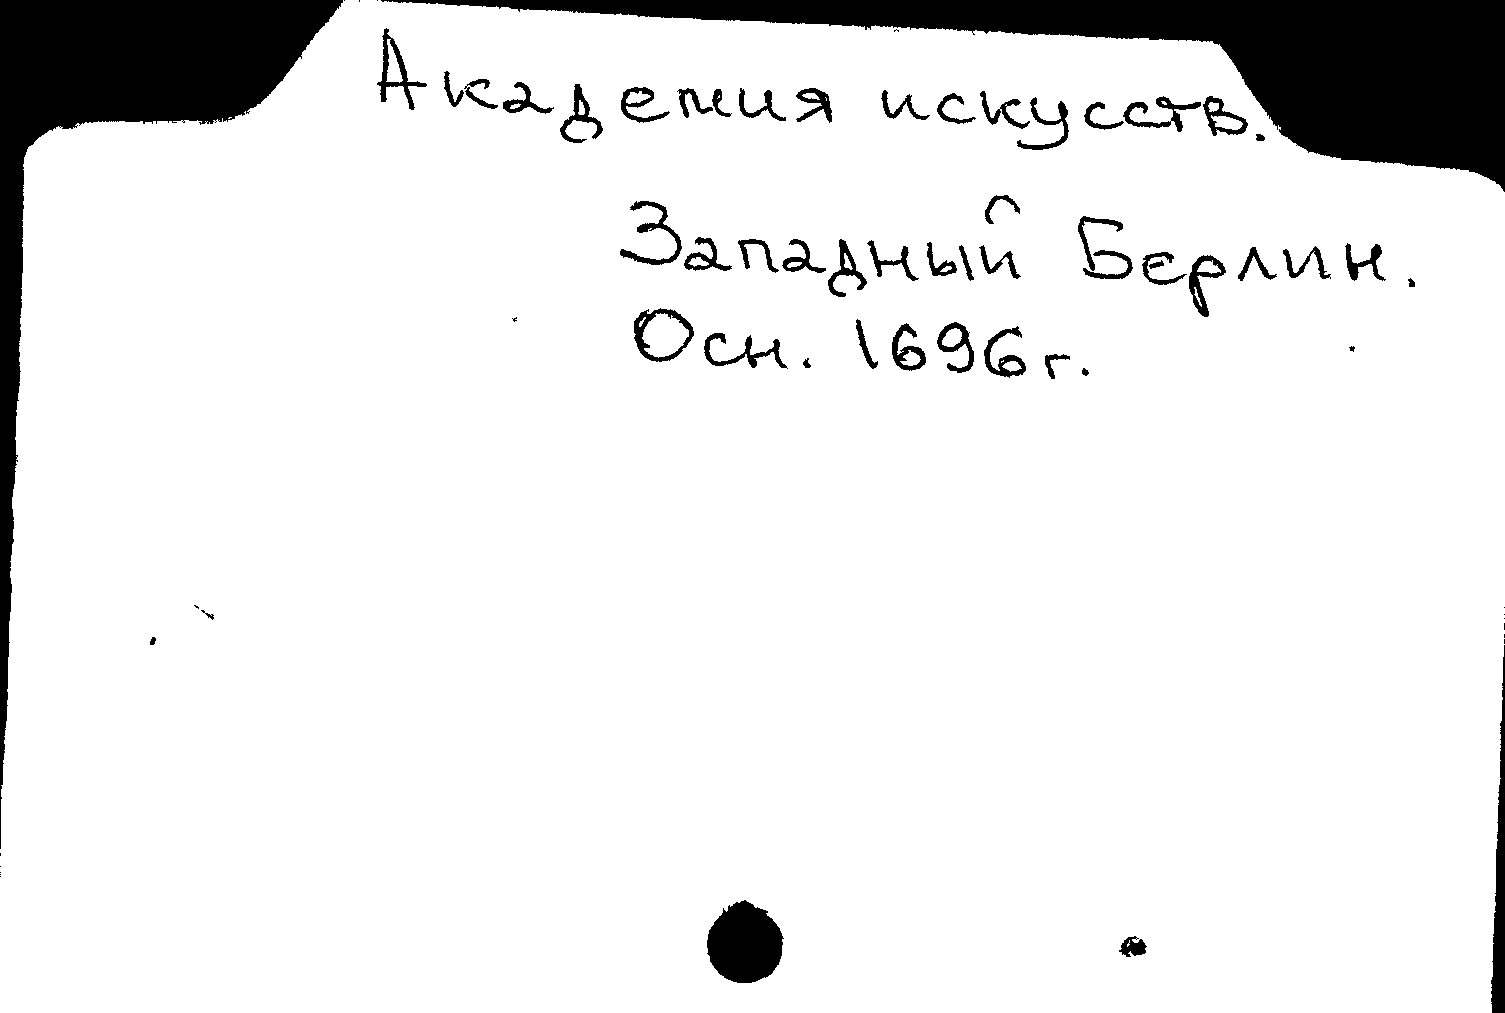 Академия искусств.
Западный Берлин.
Осн. 1696 г.